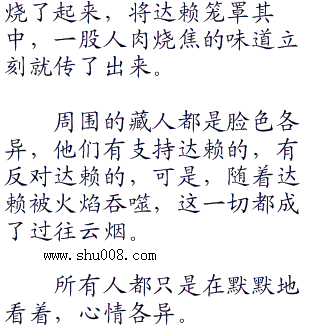 烧了起来，将达赖笼罩其
中，一股人肉烧焦的味道立
刻就传了出来。
周围的藏人都是脸色各
异，他们有支持达赖的，有
反对达赖的，可是，随着达
赖被火焰吞噬，这一切都成
了过往云烟。
www.shu008.com
所有人都只是在默默地
看着，心情各异。